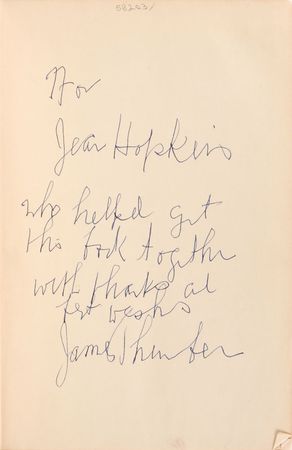 58203/
For
Jean Hopkins
who helped get
this book together
with thanks and
best wishes
James Thurber